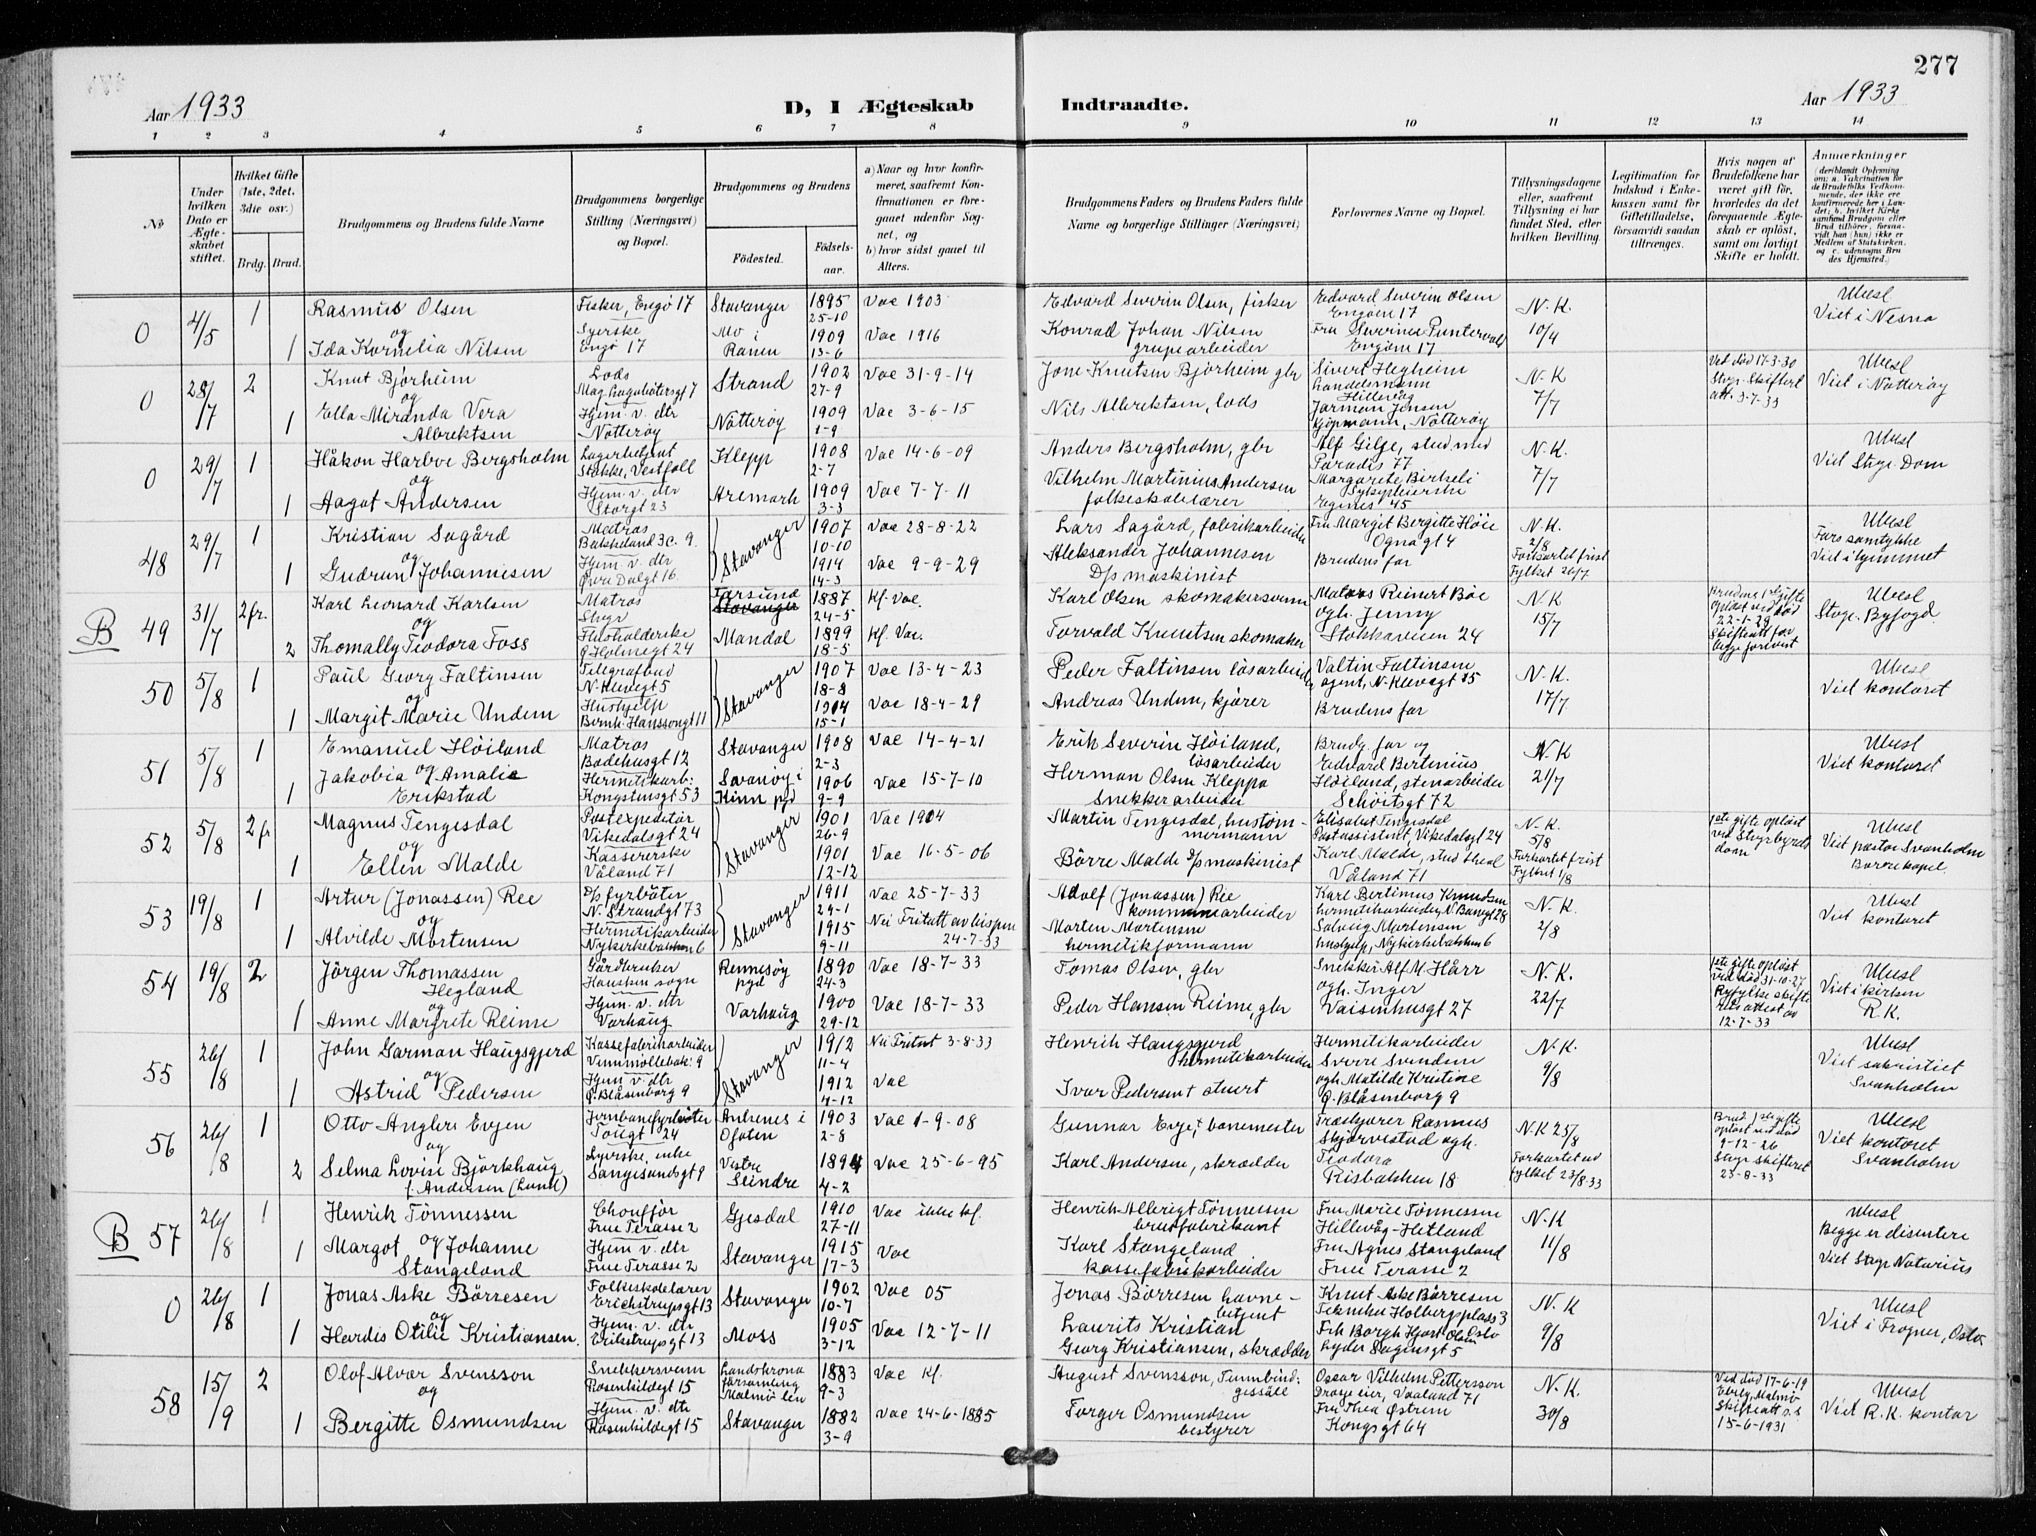 277
Aar 1933
D, I Ægteskab Indtraadte.
Aar 1933
1 2 3 4 5 6 7 8 9 10 11 12 13 14
No
Under hvilken Dato er Ægteskabet stiftet.
Hvilket Gifte (1ste, 2det, 3die osv.)
Brdg. Brud.
Brudgommens og Brudens fulde Navne
Brudgommens borgerlige Stilling (Næringsvei) og Bopæl.
Brudgommens og Brudens
Fødested. Fødselsaar.
a) Naar og hvor konfirmeret, saafremt Konfirmationen er foregaaet udenfor Sognet, og
b) hvor sidst gaaet til Alters.
Brudgommens Faders og Brudens Faders fulde Navne og borgerlige Stillinger (Næringsvei)
Forlovernes Navne og Bopæl.
Tillysningsdagene eller, saafremt Tillysning ei har fundet Sted, efter hvilken Bevilling.
Legitimation for Indskud i Enkekassen samt for Giftetilladelse, forsaavidt saadan tiltrænges.
Hvis nogen af Brudefolkene har været gift før, hvorledes da det foregaaende Ægteskab er opløst, samt om lovligt Skifte er holdt.
Anmerkninger
0 4/5 1 Rasmus Olsen Fisker, Engø 17 Stavanger 1895 25-10 Vac 1903 Edvard Severin Olsen, fisker Edvard Severin Olsen Engøen 17 N. K. 10/4 Ubesl Viet i Nesna
og
1 Ida Kornelia Nilsen Syerske Engø 17 Mo i Ranen 1909 13-6 Vac 1916 Konrad Johan Nilsen grupearbeider Fru Severine Puntervold Engøen 17
0 28/7 2 Knut Bjørheim Lods Mag. Lagabøtersgt 7 Strand 1902 27-9 Vac 31-9-14 Jone Knutsen Bjørheim gbr Sivert Hegheim Landelsmann Hillevåg N. K 7/7 Ved død 17-3-30 Stvgr. Skifterett att. 3-7-33 Ubesl Viet i Nøtterøy
og
1 Ella Miranda Vera Albrektsen Hjem. v. dtr Nøtterøy Nøtterøy 1909 1-9 Vac 3-6-15 Nils Albrektsen, lods Jarman Jensen Kjøpmann, Nøtterøy
0 29/7 1 Håkon Harbve Bergsholm Lagerbetjent Stokke, Vestfoll Klepp 1908 2-7 Vac 14-6-09 Anders Bergsholm, gbr Alf Gilje, stud med Paradis 77 N. K. 7/7 Ubesl Viet Stvgr. Dom
og
1 Aagot Andersen Hjem. v. dtr Storgt 23 Aremark 1909 3-3 Vac 7-7-11 Vilhelm Martinius Andersen folkeskolelærer Margarete Birkeli Sykepleierske Egenes 45
48 29/7 1 Kristian Sagård Matros Bakkeland 3c. 9. Stavanger 1907 10-10 Vac 28-8-22 Lars Sagård, fabrikarbeider Fru Margit Bergitte Høie Ognagt 4 N. K. 2/8 Forkortet frist Fylket 26/7 Ubesl Fars samtykke Viet i hjemmet
og
1 Gudrun Johannesen Hjem v. dtr Øvre Dalgt 16 1914 14-3 Vac 9-9-29 Aleksander Johannesen D/s maskinist Brudens far
B 49 31/7 2 fr. Karl Leonard Karlsen Matros Stvgr Farsund 1887 24-5 Kf. Vac. Karl Olsen skomakersvenn Matros Reinert Bøe ogh. Jenny Stokkaveien 24 N. K 15/7 Brudens 1ste gifte opløst ved død 22-1-29 Skifteatt for begge forevist Ubesl Stvgr. Byfogd
og
2 Thomally Teodora Foss Husholderske Ø Holmegt 24 Mandal 1899 18-5 Kf. Vac. Torvald Knutsen skomaker
50 5/8 1 Paul Georg Faltinsen Telegrafbud N. Klevegt 5 Stavanger 1907 18-8 Vac 13-4-23 Peder Faltinsen løsarbeider Valtin Faltinsen agent, N. Klevagt 15 N. K. 17/7 Ubesl Viet kontoret
og
1 Margit Marie Undem Hushjelp Bernh. Hanssensgt 11 1914 15-1 Vac 18-4-29 Andreas Undem, kjører Brudens far
51 5/8 1 Emanuel Høiland Matros Badehusgt 12 Stavanger 1908 2-3 Vac 14-4-21 Erik Severin Høiland, løsarbeider Brudg. far og Edvard Bertinius Høiland, stenarbeider Schøitsgt 72 N. K 21/7 Ubesl Viet kontoret
og
1 Jakobia Amalie Erikstad Hermetikarb: Kongstensgt 53 Svanøy i Kinn pgd 1906 9-9 Vac 15-7-10 Herman Olsen Kleppa Snekkerarbeider
52 5/8 2 fr Magnus Tengesdal Postexpeditør Vikedalsgt 24 Stavanger 1901 26-9 Vac 1904 Martin Tengesdal, hustømmermann Elisabet Tengesdal Postassistent, Vikedalsgt 24 N. K. 5/8 Forkortet frist Fylket 1/8 1ste gifte opløst ved Stvgr byretts dom Ubesl Viet pastor Svanholm Barrekapel.
og
1 Ellen Malde Kassererske Våland 71 1901 12-12 Vac 16-5-06 Børre Malde D/s maskinist Karl Malde, stud theol Våland 71
53 19/8 1 Artur (Jonassen) Ree D/s fyrbøter N. Strandgt 73 Stavanger 1911 29-1 Vac 25-7-33 Adolf (Jonassen) Ree kommunearbeider Karl Bertinius Knudsen hermetikarbeider, N. Banegt 28 N. K. 2/8 Ubesl Viet kontoret
og
1 Alvilde Mortensen Hermetikarbeider Nykirkebakken 6 1915 9-11 Nei Fritatt av bispen 24-7-33 Morten Mortensen hermetikformann Solveig Mortensen hushjelp, Nykirkebakken 6
54 19/8 2 Jørgen Thomassen Hegland Gårdbruker Hausken sogn Rennesøy pgd 1890 24-3 Vac 18-7-33 Tomas Olsen, gbr Snekker Alf M. Hårr ogh. Inger Vaisenhusgt 27 N. K. 22/7 1ste gifte opløst ved død 31-10-27 Ryfylke skifteretts attest av 12-7-33 Ubesl Viet i kirken R. K.
og
1 Anne Margrete Reime Hjem. v. dtr Varhaug Varhaug 1900 29-12 Vac 18-7-33 Peder Hansen Reime, gbr
55 26/8 1 John Garman Haugsgjerd Kassefabrikarbeider Vinnmøllebak. 9 Stavanger 1912 11-4 Nei Fritatt 3-8-33 Henrik Haugsgjerd hermetikarbeider Hermetikarbeider Sverre Svendsen ogh Matilde Kristine Ø. Blåsenborg 9 N. K. 9/8 Ubesl Viet sakristiet Svanholm
og
1 Astrid Pedersen Hjem v. dtr Ø. Blåsenborg 9 1912 4-12 Vac Ivar Pedersen stuert
56 26/8 1 Otto Angler Evjen Jernbanefyrbøter Tougt 24 Ankenes i Ofoten 1903 2-8 Vac 1-9-08 Gunnar Evjen banemester Træskjærer Rasmus Skjørvestad ogh. Teodora Risbakken 18 N. K 25/8 Forkortet av fylket 23/8 33 Brud. 1ste gifte opløst ved død 9-12-26 Stvgr Skifteret 23-8-33 Ubesl Viet kontoret Svanholm
og
2 Selma Lovise Bjørkhaug f. Andersen (Lund) Syerske, enke Langesundsgt 9 Vestre Slindre 1894 4-2 Vac 25-6-95 Karl Andersen, skrædder
B 57 26/8 1 Henrik Tønnessen Chouffør Frue Terasse 2 Gjesdal 1910 27-11 Vac ikke kf. Henrik Albrigt Tønnesen brusfabrikant Fru Marie Tønnessen Hillevåg-Hetland N. K 11/8 Ubesl Begge er disentere Viet Stvgr Notarius
og
1 Margot Johanne Stangeland Hjem v. dtr Frue Terasse 2 Stavanger 1915 17-3 Vac Karl Stangeland kassefabrikarbeider Fru Agnes Stangeland Frue Terasse 2
0 26/8 1 Jonas Aske Børresen Folkeskolelærer Erichstrupsgt 13 Stavanger 1902 10-7 Vac 05 Jonas Børresen havnebetjent Knut Aske Børresen Tekniker Holbergsplass 3 Oslo N. K 9/8 Ubesl Viet i Frogner, Oslo
og
1 Herdis Otilie Kristiansen Hjem. v. dtr Erikstrupsgt 13 Moss 1905 3-12 Vac 12-7-11 Laurits Kristian Georg Kristiansen, skrædder Frk Borgh Hjort Olsen Lyder Sagensgt 5
58 15/9 2 Olof Alvar Svensson Snekkersvenn Rosenhildegt 15 Landskrona forsamling Malmø len 1883 9-3 Vac Kf. August Svensson, Tunnbindgesäll Oscar Vilhelm Pettersson Drosjeeier, Vaaland 71 N. K. 30/8 Ved død 17-6-19 Malmø Skifteatt 15-6-1931 Ubesl Viet R. K. kontor
og
1 Bergitte Osmundsen Hjem v. dtr Rosenhildegt 15 Stavanger 1882 3-9 Vac 24-6-1885 Torger Osmundsen bestyrer Fru Thea Østrem Kongsgt 64